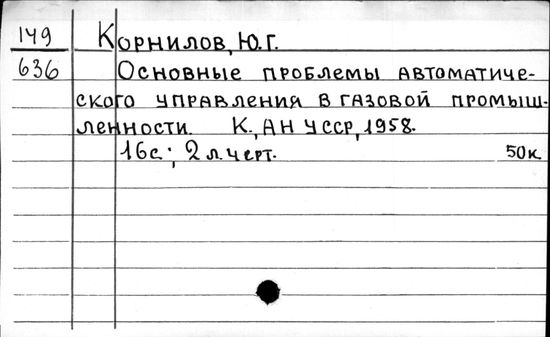 149 Корнилов, Ю.Г.
636 Основные проблемы автоматиче-
ского управления в газовой промыш-
ленности. К., АН УССР, 1958.
16с.; 2 л. черт. 50к.